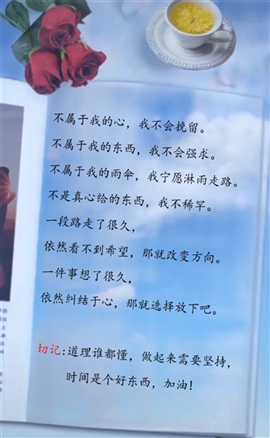 不属于我的心，我不会挽留。
不属于我的东西，我不会强求。
不属于我的雨伞，我宁愿淋雨走路。
不是真心给的东西，我不稀罕。
一段路走了很久，
依然看不到希望，那就改变方向。
一件事想了很久，
依然纠结于心，那就选择放下吧。
切记:道理谁都懂，做起来需要坚持，
时间是个好东西，加油！